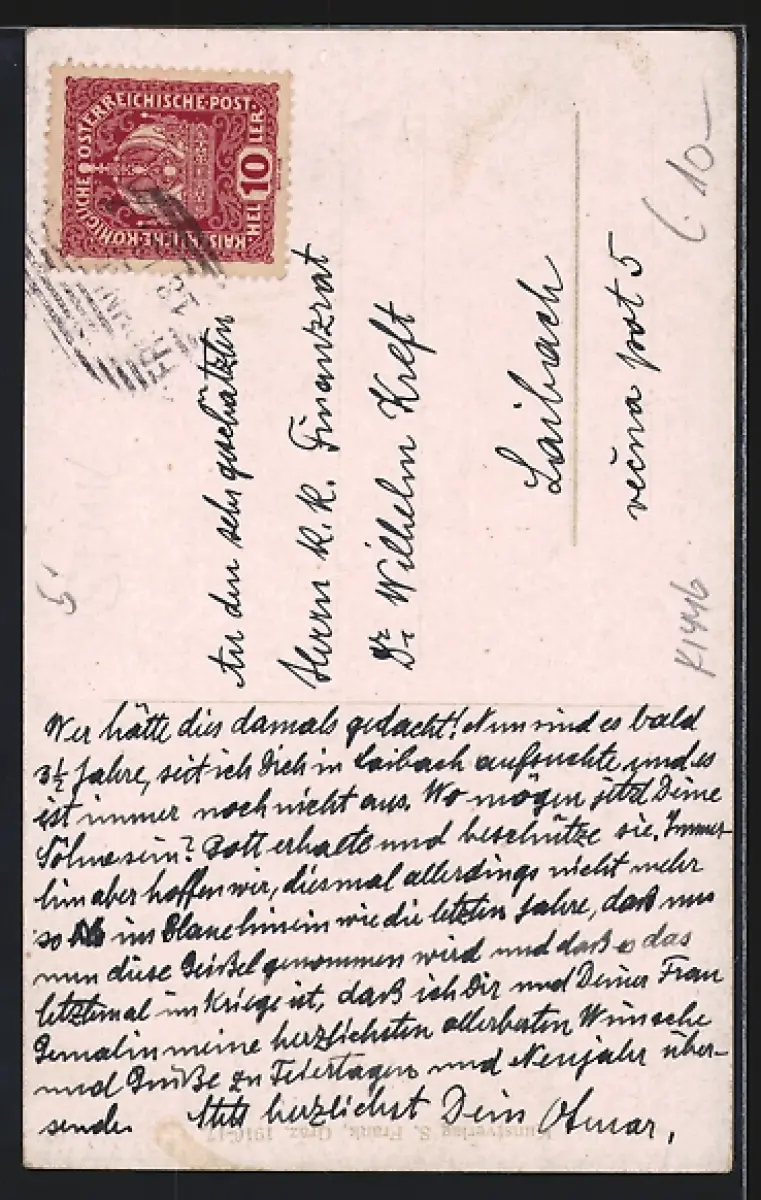 KAISERLICHE KÖNIGLICHE ÖSTERREICHISCHE POST
10 HELLER
An den sehr geschätzten
Herrn k. k. Finanzrat
Dr. Wilhelm Kreft
Laibach
večna pot 5
6.10—
K1446
Wer hätte dies damals gedacht! Nun sind es bald
3½ Jahre, seit ich Dich in Laibach aufsuchte und es
ist immer noch nicht aus. Wo mögen jetzt Deine
Söhne sein? Gott erhalte und beschütze sie. Immer-
hin aber hoffen wir, diesmal allerdings nicht mehr
so ins Blaue hinein wie die letzten Jahre, daß uns
nun diese Geißel genommen wird und daß es das
letztemal im Kriege ist, daß ich Dir und Deiner Frau
Gemalin meine herzlichsten allerbesten Wünsche
und Grüße zu Feiertagen und Neujahr über-
sende. Stets herzlichst Dein Otmar,
Kunstverlag S. Frank, Graz. 1916-17